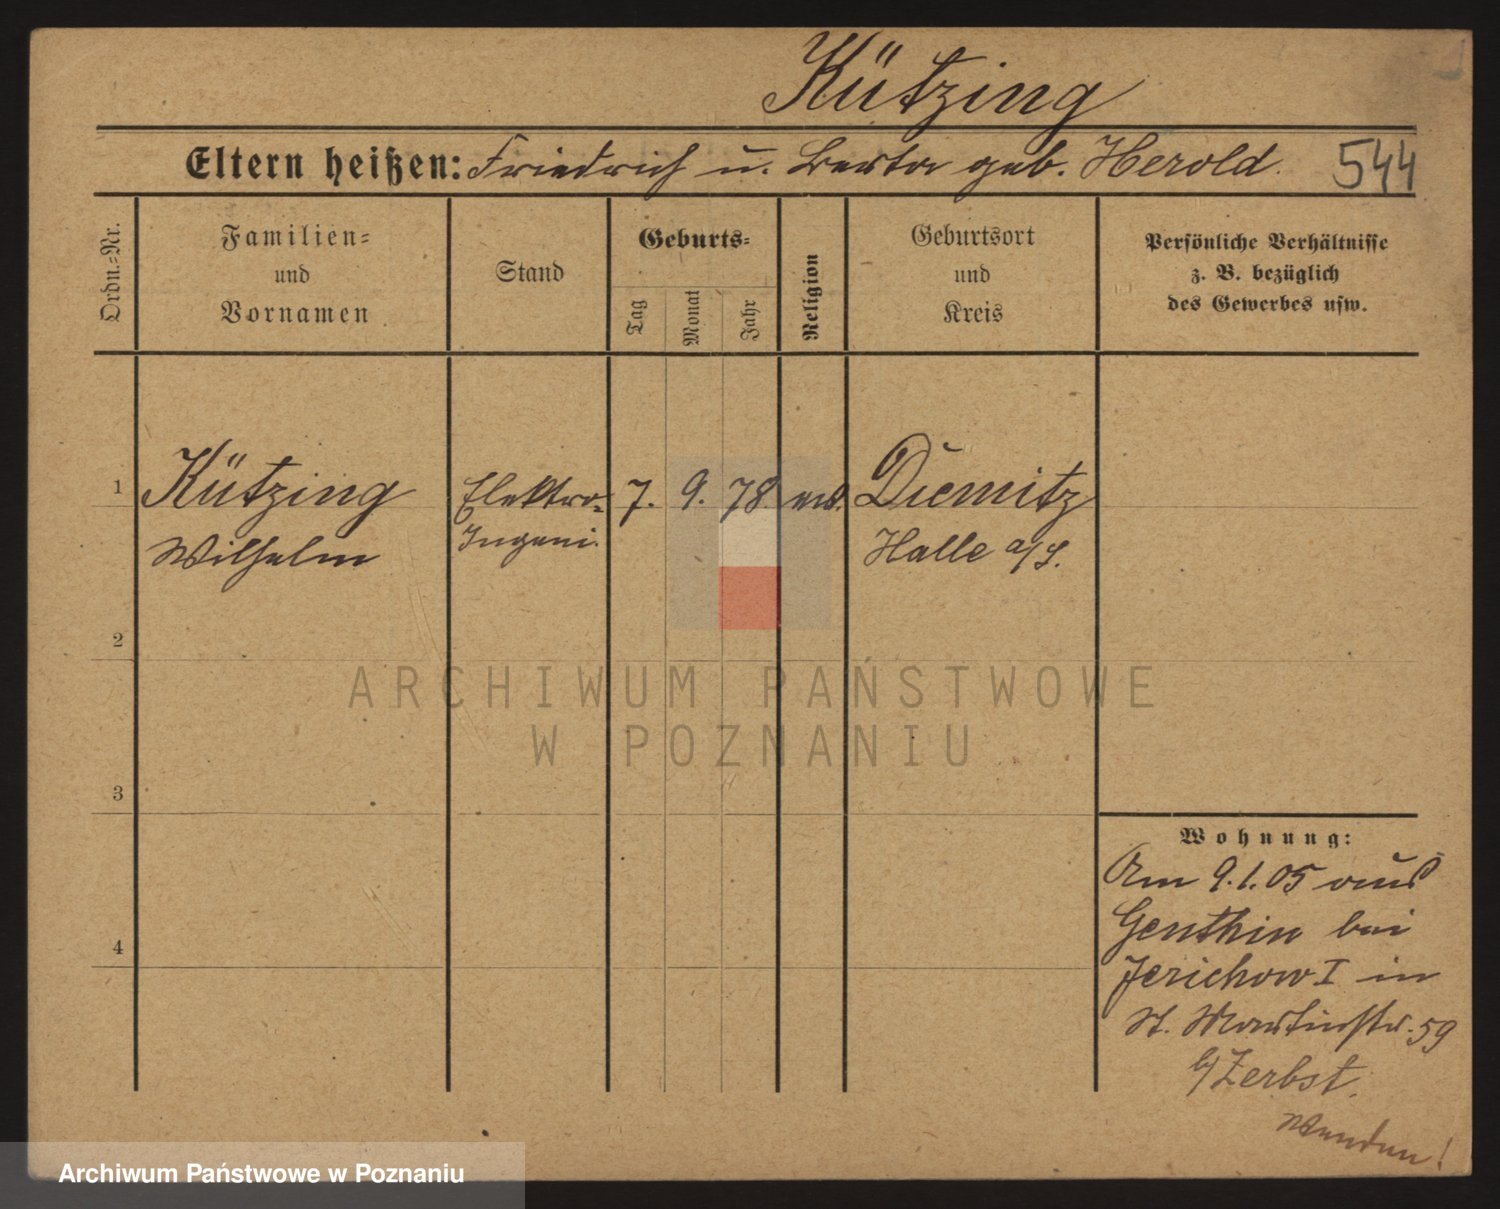 Kützing
Eltern heißen: Friedrich u. Berta geb. Herold. 544
Ordn.-Nr.
Familien-
und
Vornamen
Stand
Geburts-
Tag
Monat
Jahr
Religion
Geburtsort
und
Kreis
Persönliche Verhältnisse
z. B. bezüglich
des Gewerbes usw.
1 Kützing Elektro- 7. 9. 78. ev. Diemitz
Wilhelm Ingeni. Halle a/S.
2
3
4
ARCHIWUM PAŃSTWOWE
W POZNANIU
Wohnung:
Am 9.1.05 aus
Genthin bei
Jerichow I in
St. Martinstr. 59
b/ Zerbst.
Wenden!
Archiwum Państwowe w Poznaniu